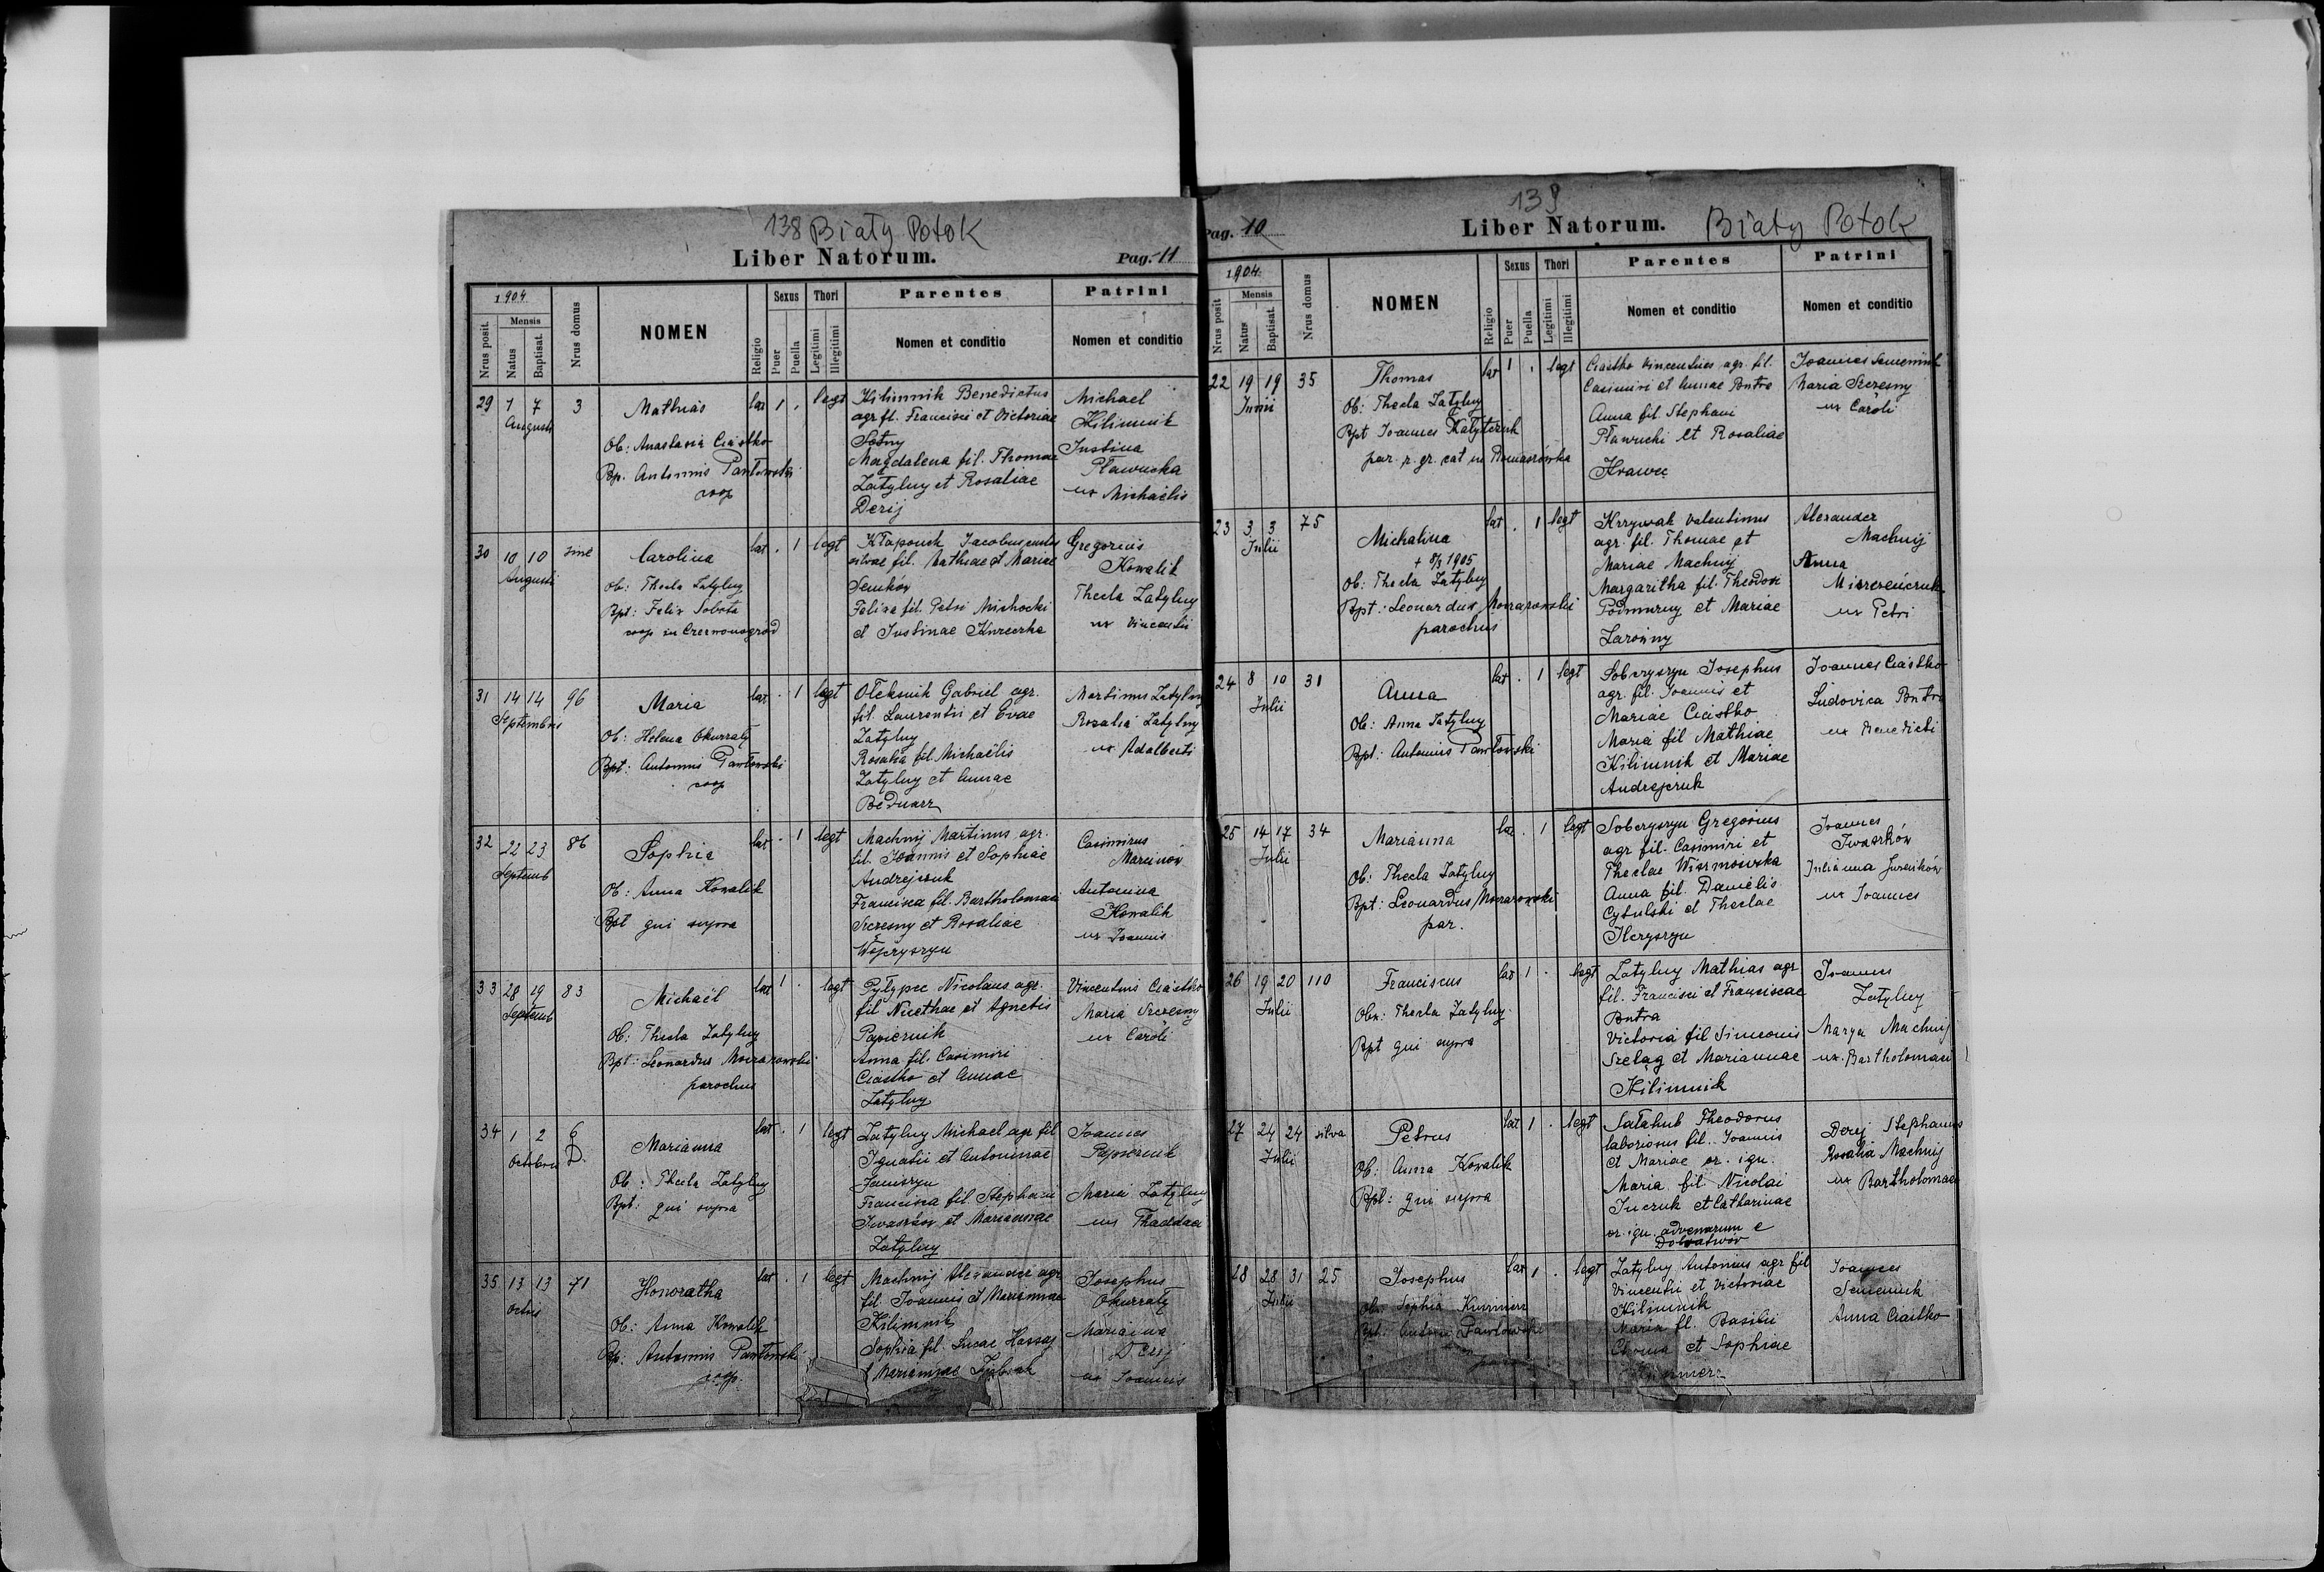 138 Biały Potok
Liber Natorum.
Pag. 11
1904.
Nrus posit.
Mensis
Natus
Baptisat.
Nrus domus
NOMEN
Religio
Sexus
Puer
Puella
Thori
Legitimi
Illegitimi
Parentes
Nomen et conditio
Patrini
Nomen et conditio
29 7 7 3
Augusti
Mathias
Ob: Anastasia Ciastko
Bp. Antonius Pawłowski
coop
lat 1 . legt
Kilimnik Benedictus
agr. fil. Francisci et Victoriae
Magdalena fil. Thomae
Zatylny et Rosaliae
Derij
Michael
Kilimnik
Justina
Pławucka
ux Michaelis
30 10 10
Augusti
Carolina
Ob: Thecla Zatylny
Bpt: Felix Sobota
coop in Czerwonogród
lat . 1 legt
Kłapouch Jacobus custos
silvae fil. Mathiae et Mariae
Semków
Felixa fil. Petri Michocki
et Justinae
Gregorius
Kowalik
Thecla Zatylny
ux Vincentii
31 14 14 96
Septembris
Maria
Ob: Helena Okurzały
Bpt: Antonius Pawłowski
coop
lat . 1 legt
Oleksiuk Gabriel agr.
fil. Laurentii et Evae
Zatylny
Rosalia fil. Michaelis
Zatylny et Annae
Bednarz
Martinus Zatylny
Rozalia Zatylny
ux Adalberti
32 22 23 86
Septemb
Sophia
Ob: Anna Kowalik
Bpt qui supra
lat . 1 legt
Machnij Martinus agr.
fil. Joannis et Sophiae
Andrejczuk
Francisca fil. Bartholomaei
Szczesny et Rosaliae
Wojczyszyn
Casimirus
Marcinów
Antonina
Kowalik
ux Joannis
33 28 29 83
Septemb
Michaël
Ob: Thecla Zatylny
Bpt: Leonardus
parochus
lat 1 . legt
Pyłypec Nicolaus agr.
fil Nicethae et Agnetis
Papiernik
Anna fil. Casimiri
Ciastko et Annae
Zatylny
Vincentius Ciastko
Maria Szczesny
ux Caroli
34 1 2 6
Octobris D.
Marianna
Ob: Thecla Zatylny
Bpt: qui supra
lat . 1 legt
Zatylny Michael agr fil
Ignatii et Antoninae
Januszyn
Francisca fil. Stephani
Iwasków et Mariannae
Zatylny
Joannes
Papiernik
Maria Zatylny
ux Thaddaei
35 13 13 71
Octbris
Honoratha
Ob: Anna Kowalik
Bp: Antonius Pawłowski
coop.
lat . 1 legt
Machnij Alexander agr
fil. Joannis et Mariannae
Kilimnik
Sophia fil. Lucae Hassaj
Mariannae
Josephus
Okurzały
Marianna
Derij
ux Joannis
Pag. 10
139
Liber Natorum.
Biały Potok
1904.
Nrus posit
Mensis
Natus
Baptisat.
Nrus domus
NOMEN
Religio
Sexus
Puer
Puella
Thori
Legitimi
Illegitimi
Parentes
Nomen et conditio
Patrini
Nomen et conditio
22 19 19 35
Junii
Thomas
Ob: Thecla Zatylny
Bpt Joannes Kałytczuk
par. r. gr. cat in Romaszówka
lat 1 . legt
Ciastko Vincentius agr. fil.
Casimiri et Annae Putra
Anna fil. Stephani
Pławucki et Rosaliae
Krawec
Joannes Semeniuk
Maria Szczesny
ux Caroli
23 3 3 75
Julii
Michalina
+ 8/3 1905
Ob: Thecla Zatylny
Bpt: Leonardus
parochus
lat . 1 legt
Krzywak Valentinus
agr. fil. Thomae et
Mariae Machnij
Margaritha fil. Theodosi
Podmurny et Mariae
Zarówny
Alexander
Machnij
Anna
ux Petri
24 8 10 31
Julii
Anna
Ob: Anna Zatylny
Bpt: Antonius Pawłowski
lat . 1 legt
Soberyszyn Josephus
agr. fil. Joannis et
Mariae Ciastko
Maria fil Mathiae
Kilimnik et Mariae
Andrejczuk
Joannes Ciastko
Ludovica Putra
ux Benedicti
25 14 17 34
Julii
Marianna
Ob: Thecla Zatylny
Bpt: Leonardus
par.
lat . 1 legt
Soberyszyn Gregorius
agr fil. Casimiri et
Theclae
Anna fil. Danielis
Cybulski et Theclae
Ilczyszyn
Joannes
Iwasków
Julianna
ux Joannes
26 19 20 110
Julii
Franciscus
Obx: Thecla Zatylny
Bpt qui supra
lat 1 . legt
Zatylny Mathias agr
fil. Francisci et Franciscae
Putra
Victoria fil Simeonis
Szeląg et Mariannae
Kilimnik
Joannes
Zatylny
Marya Machnij
ux. Bartholomaei
27 24 24 silva
Julii
Petrus
Ob: Anna Kowalik
Bpt: qui supra
lat 1 . legt
Sałahub Theodorus
laboriosus fil. Joannis
et Mariae or. ign.
Maria fil. Nicolai
et Catharinae
or. ign. advenarum e
Dobratwor
Derij Stephanus
Rosalia Machnij
ux Bartholomaei
28 28 31 25
Julii
Josephus
Obx: Sophia
Bpt: Antoni Pawłowski
lat 1 . legt
Zatylny Antonius agr fil
Vincentii et Victoriae
Kilimnik
Maria fil. Basilii
Choma et Sophiae
Joannes
Semeniuk
Anna Ciastko